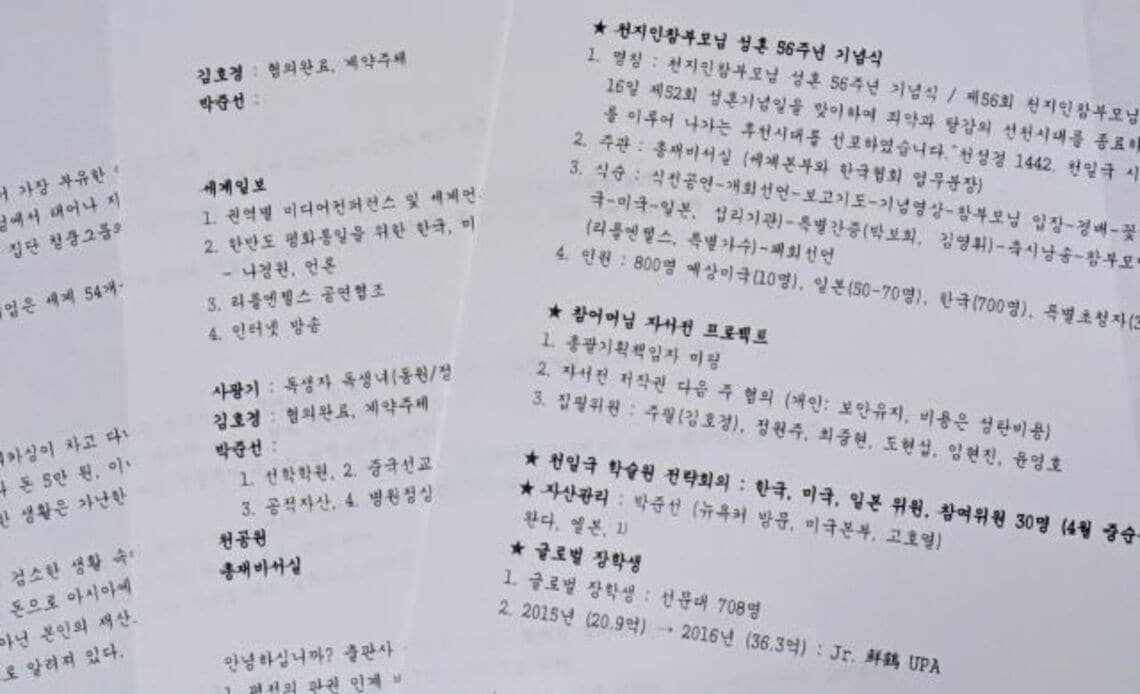 어 가장 부유한
남에서 태어나 지
집단 청쿵그룹의
업은 세계 54개
카싱이 차고 다
돈 5만 원, 이
한 생활은 가난한
검소한 생활 속
돈으로 아시아에
아닌 본인의 재산
로 알려져 있다.
김호경 : 협의완료, 계약주체
박준선 :
세계일보
1. 권역별 미디어컨퍼런스 및 세계언
2. 한반도 평화통일을 위한 한국, 미
- 나경원, 언론
3. 리틀엔젤스 공연협조
4. 인터넷 방송
사광기 : 독생자 독생녀(동원/정
김호경 : 협의완료, 계약주체
박준선 :
1. 선학학원, 2. 중국선교
3. 공적자산, 4. 병원정싱
천공원
총재비서실
안녕하십니까? 출판사
1. 평전의 판권 인계
★ 천지인참부모님 성혼 56주년 기념식
1. 명칭 : 천지인참부모님 성혼 56주년 기념식 / 제56회 천지인참부모님
16일 제52회 성혼기념일을 맞이하여 죄악과 탕감의 선천시대를 종료하
를 이루어 나가는 후천시대를 선포하였습니다." 천성경 1442. 천일국 시
2. 주관 : 총재비서실 (세계본부와 한국협회 업무분장)
3. 식순 : 식전공연-개회선언-보고기도-기념영상-참부모님 입장-경배-꽃
국-미국-일본, 섭리기관)-특별간증(박보희, 김영휘)-축시낭송-참부모
(리틀엔젤스, 특별가수)-폐회선언
4. 인원 : 800명 예상미국(10명), 일본(50-70명), 한국(700명), 특별초청자(3
★ 참어머님 자서전 프로젝트
1. 총괄기획책임자 미팅
2. 자서전 저작권 다음 주 협의 (개인: 보안유지, 비용은 성탄비용)
3. 집필위원 : 주필(김호경), 정원주, 최중현, 도현섭, 임현진, 윤영호
★ 천일국 학술원 전략회의 : 한국, 미국, 일본 위원, 참여위원 30명 (4월 중순
★ 자산관리 : 박준선 (뉴욕커 방문, 미국본부, 고호열)
완다, 엘본, 1)
★ 글로벌 장학생
1. 글로벌 장학생 : 선문대 708명
2. 2015년 (20.9억) → 2016년 (36.3억) : Jr. 鮮鶴 UPA